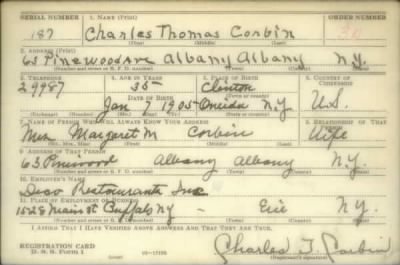 SERIAL NUMBER 1. NAME (Print) ORDER NUMBER
187 Charles Thomas Corbin
(First) (Middle) (Last)
2. ADDRESS (Print)
63 Pinewood Ave Albany Albany N.Y.
(Number and street or R. F. D. number) (Town) (County) (State)
3. TELEPHONE 4. AGE IN YEARS 5. PLACE OF BIRTH 6. COUNTRY OF CITIZENSHIP
29987 35 Clinton
DATE OF BIRTH (Town or county)
Jan 7 1905 Oneida N.Y. U.S.
(Exchange) (Number) (Mo.) (Day) (Yr.) (State or country)
7. NAME OF PERSON WHO WILL ALWAYS KNOW YOUR ADDRESS 8. RELATIONSHIP OF THAT PERSON
Mrs Margaret M Corbin Wife
(Mr., Mrs., Miss) (First) (Middle) (Last)
9. ADDRESS OF THAT PERSON
63 Pinewood Albany Albany N.Y.
(Number and street or R. F. D. number) (Town) (County) (State)
10. EMPLOYER'S NAME
Deco Restaurants Inc
11. PLACE OF EMPLOYMENT OR BUSINESS
1528 Main St Buffalo NY - Erie N.Y.
(Number and street or R. F. D. number) (Town) (County) (State)
I AFFIRM THAT I HAVE VERIFIED ABOVE ANSWERS AND THAT THEY ARE TRUE.
REGISTRATION CARD
D. S. S. Form 1 Charles T. Corbin
(over) (Registrant's signature)